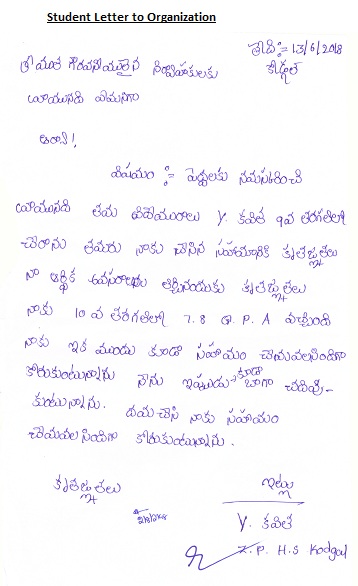 Student Letter to Organization
తేది:- 13/6/2018
శ్రీయుత గౌరవనీయులైన నిర్వాహకులకు
కోడ్గల్
వ్రాయునది ఏమనగా
అండి!
విషయం :- పెద్దలకు నమస్కరించి
వ్రాయునది తమ విధేయురాలు Y. కవిత 9వ తరగతిలో
చేరాను తమరు నాకు చేసిన సహాయానికి కృతజ్ఞతలు
నా ఆర్థిక అవసరాలను తీర్చినందుకు కృతజ్ఞతలు
నాకు 10 వ తరగతిలో 7.8 G. P. A వచ్చింది
నాకు ఇక ముందు కూడా సహాయం చేయవలసిందిగా
కోరుకుంటున్నాను నేను ఇప్పుడు కూడా బాగా చదివు-
కుంటున్నాను. దయచేసి నాకు సహాయం
చేయవలసిందిగా కోరుకుంటున్నాను.
కృతజ్ఞతలు
ఇట్లు
Y. కవిత
Z. P. H. S Kodgal